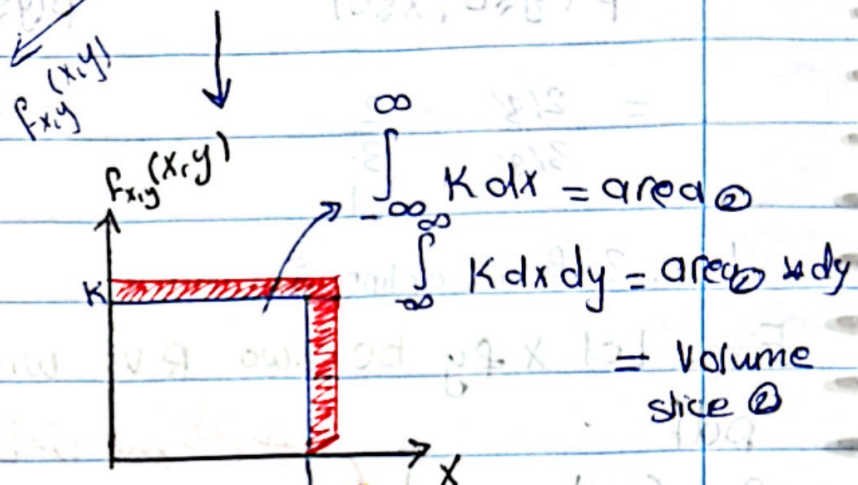 fx,y(x,y)
fx,y(x,y)
∞
∫ K dx = area ②
-∞
∞
∫ K dx dy = area② * dy
-∞
= Volume
slice ②
K
X